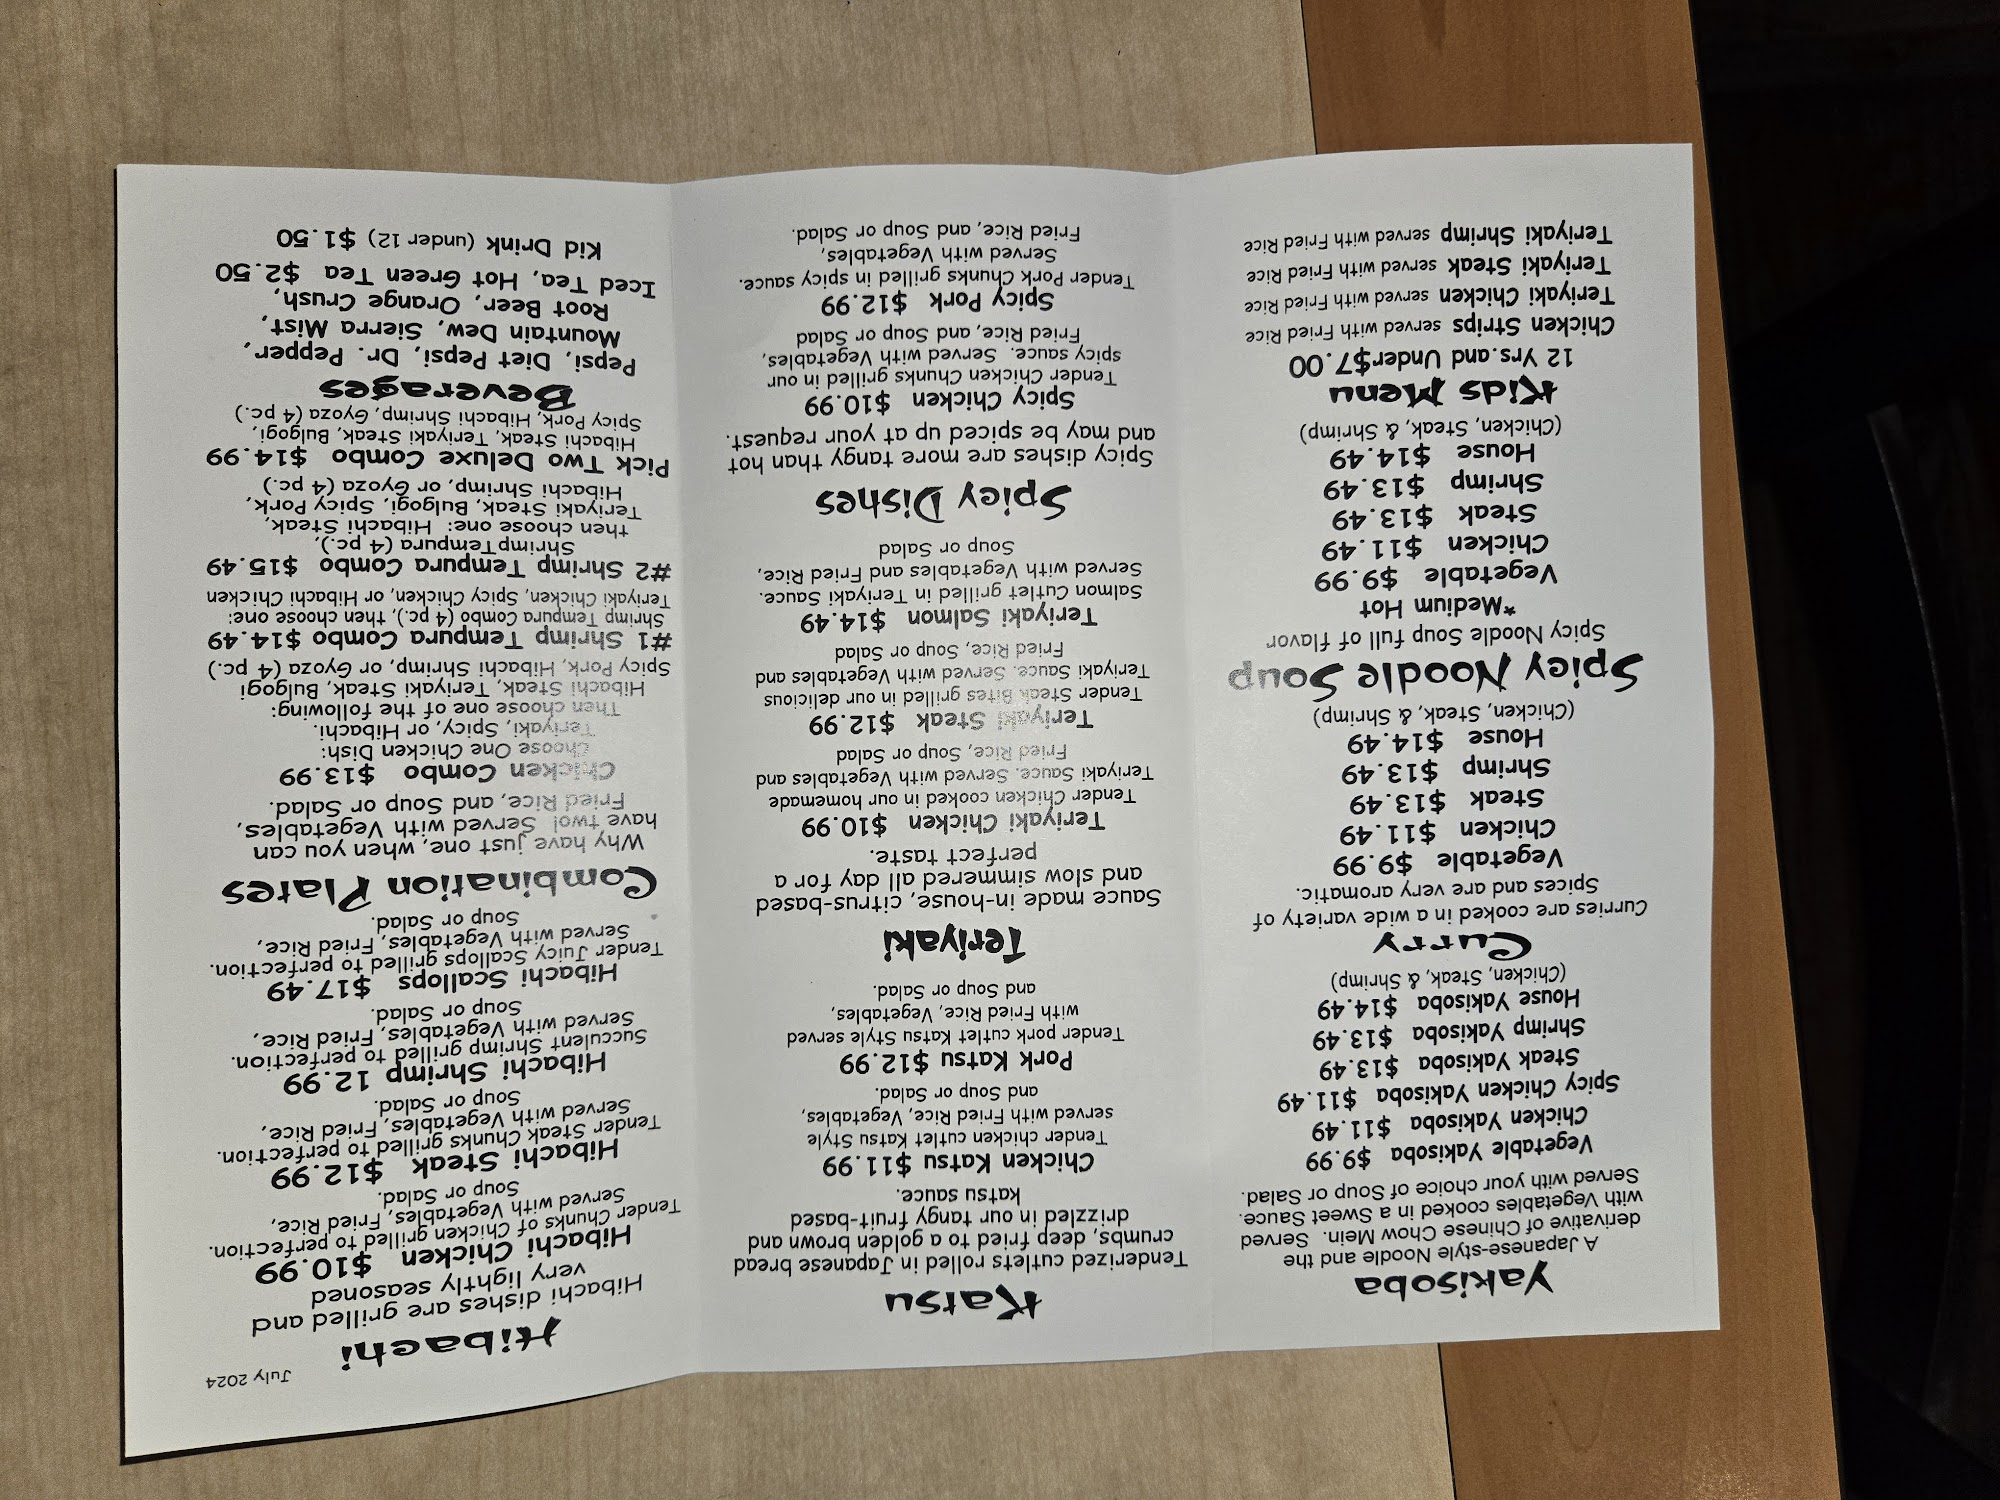 Yakisoba
A Japanese-style Noodle and the
derivative of Chinese Chow Mein. Served
with Vegetables cooked in a Sweet Sauce.
Served with your choice of Soup or Salad.
Vegetable Yakisoba $9.99
Chicken Yakisoba $11.49
Spicy Chicken Yakisoba $11.49
Steak Yakisoba $13.49
Shrimp Yakisoba $13.49
House Yakisoba $14.49
(Chicken, Steak, & Shrimp)
Curry
Curries are cooked in a wide variety of
Spices and are very aromatic.
Vegetable $9.99
Chicken $11.49
Steak $13.49
Shrimp $13.49
House $14.49
(Chicken, Steak, & Shrimp)
Spicy Noodle Soup
Spicy Noodle Soup full of flavor
*Medium Hot
Vegetable $9.99
Chicken $11.49
Steak $13.49
Shrimp $13.49
House $14.49
(Chicken, Steak, & Shrimp)
Kids Menu
12 Yrs.and Under$7.00
Chicken Strips served with Fried Rice
Teriyaki Chicken served with Fried Rice
Teriyaki Steak served with Fried Rice
Teriyaki Shrimp served with Fried Rice
Katsu
Tenderized cutlets rolled in Japanese bread
crumbs, deep fried to a golden brown and
drizzled in our tangy fruit-based
katsu sauce.
Chicken Katsu $11.99
Tender chicken cutlet Katsu Style
served with Fried Rice, Vegetables,
and Soup or Salad.
Pork Katsu $12.99
Tender pork cutlet Katsu Style served
with Fried Rice, Vegetables,
and Soup or Salad.
Teriyaki
Sauce made in-house, citrus-based
and slow simmered all day for a
perfect taste.
Teriyaki Chicken $10.99
Tender Chicken cooked in our homemade
Teriyaki Sauce. Served with Vegetables and
Fried Rice, Soup or Salad
Teriyaki Steak $12.99
Tender Steak Bites grilled in our delicious
Teriyaki Sauce. Served with Vegetables and
Fried Rice, Soup or Salad
Teriyaki Salmon $14.49
Salmon Cutlet grilled in Teriyaki Sauce.
Served with Vegetables and Fried Rice,
Soup or Salad
Spicy Dishes
Spicy dishes are more tangy than hot
and may be spiced up at your request.
Spicy Chicken $10.99
Tender Chicken Chunks grilled in our
spicy sauce. Served with Vegetables,
Fried Rice, and Soup or Salad
Spicy Pork $12.99
Tender Pork Chunks grilled in spicy sauce.
Served with Vegetables,
Fried Rice, and Soup or Salad.
July 2024
Hibachi
Hibachi dishes are grilled and
very lightly seasoned
Hibachi Chicken $10.99
Tender Chunks of Chicken grilled to perfection.
Served with Vegetables, Fried Rice,
Soup or Salad.
Hibachi Steak $12.99
Tender Steak Chunks grilled to perfection.
Served with Vegetables, Fried Rice,
Soup or Salad.
Hibachi Shrimp 12.99
Succulent Shrimp grilled to perfection.
Served with Vegetables, Fried Rice,
Soup or Salad.
Hibachi Scallops $17.49
Tender Juicy Scallops grilled to perfection.
Served with Vegetables, Fried Rice,
Soup or Salad.
Combination Plates
Why have just one, when you can
have two! Served with Vegetables,
Fried Rice, and Soup or Salad.
Chicken Combo $13.99
Choose One Chicken Dish:
Teriyaki, Spicy, or Hibachi.
Then choose one of the following:
Hibachi Steak, Teriyaki Steak, Bulgogi
Spicy Pork, Hibachi Shrimp, or Gyoza (4 pc.)
#1 Shrimp Tempura Combo $14.49
Shrimp Tempura Combo (4 pc.), then choose one:
Teriyaki Chicken, Spicy Chicken, or Hibachi Chicken
#2 Shrimp Tempura Combo $15.49
ShrimpTempura (4 pc.),
then choose one: Hibachi Steak,
Teriyaki Steak, Bulgogi, Spicy Pork,
Hibachi Shrimp, or Gyoza (4 pc.)
Pick Two Deluxe Combo $14.99
Hibachi Steak, Teriyaki Steak, Bulgogi,
Spicy Pork, Hibachi Shrimp, Gyoza (4 pc.)
Beverages
Pepsi, Diet Pepsi, Dr. Pepper,
Mountain Dew, Sierra Mist,
Root Beer, Orange Crush,
Iced Tea, Hot Green Tea $2.50
Kid Drink (under 12) $1.50